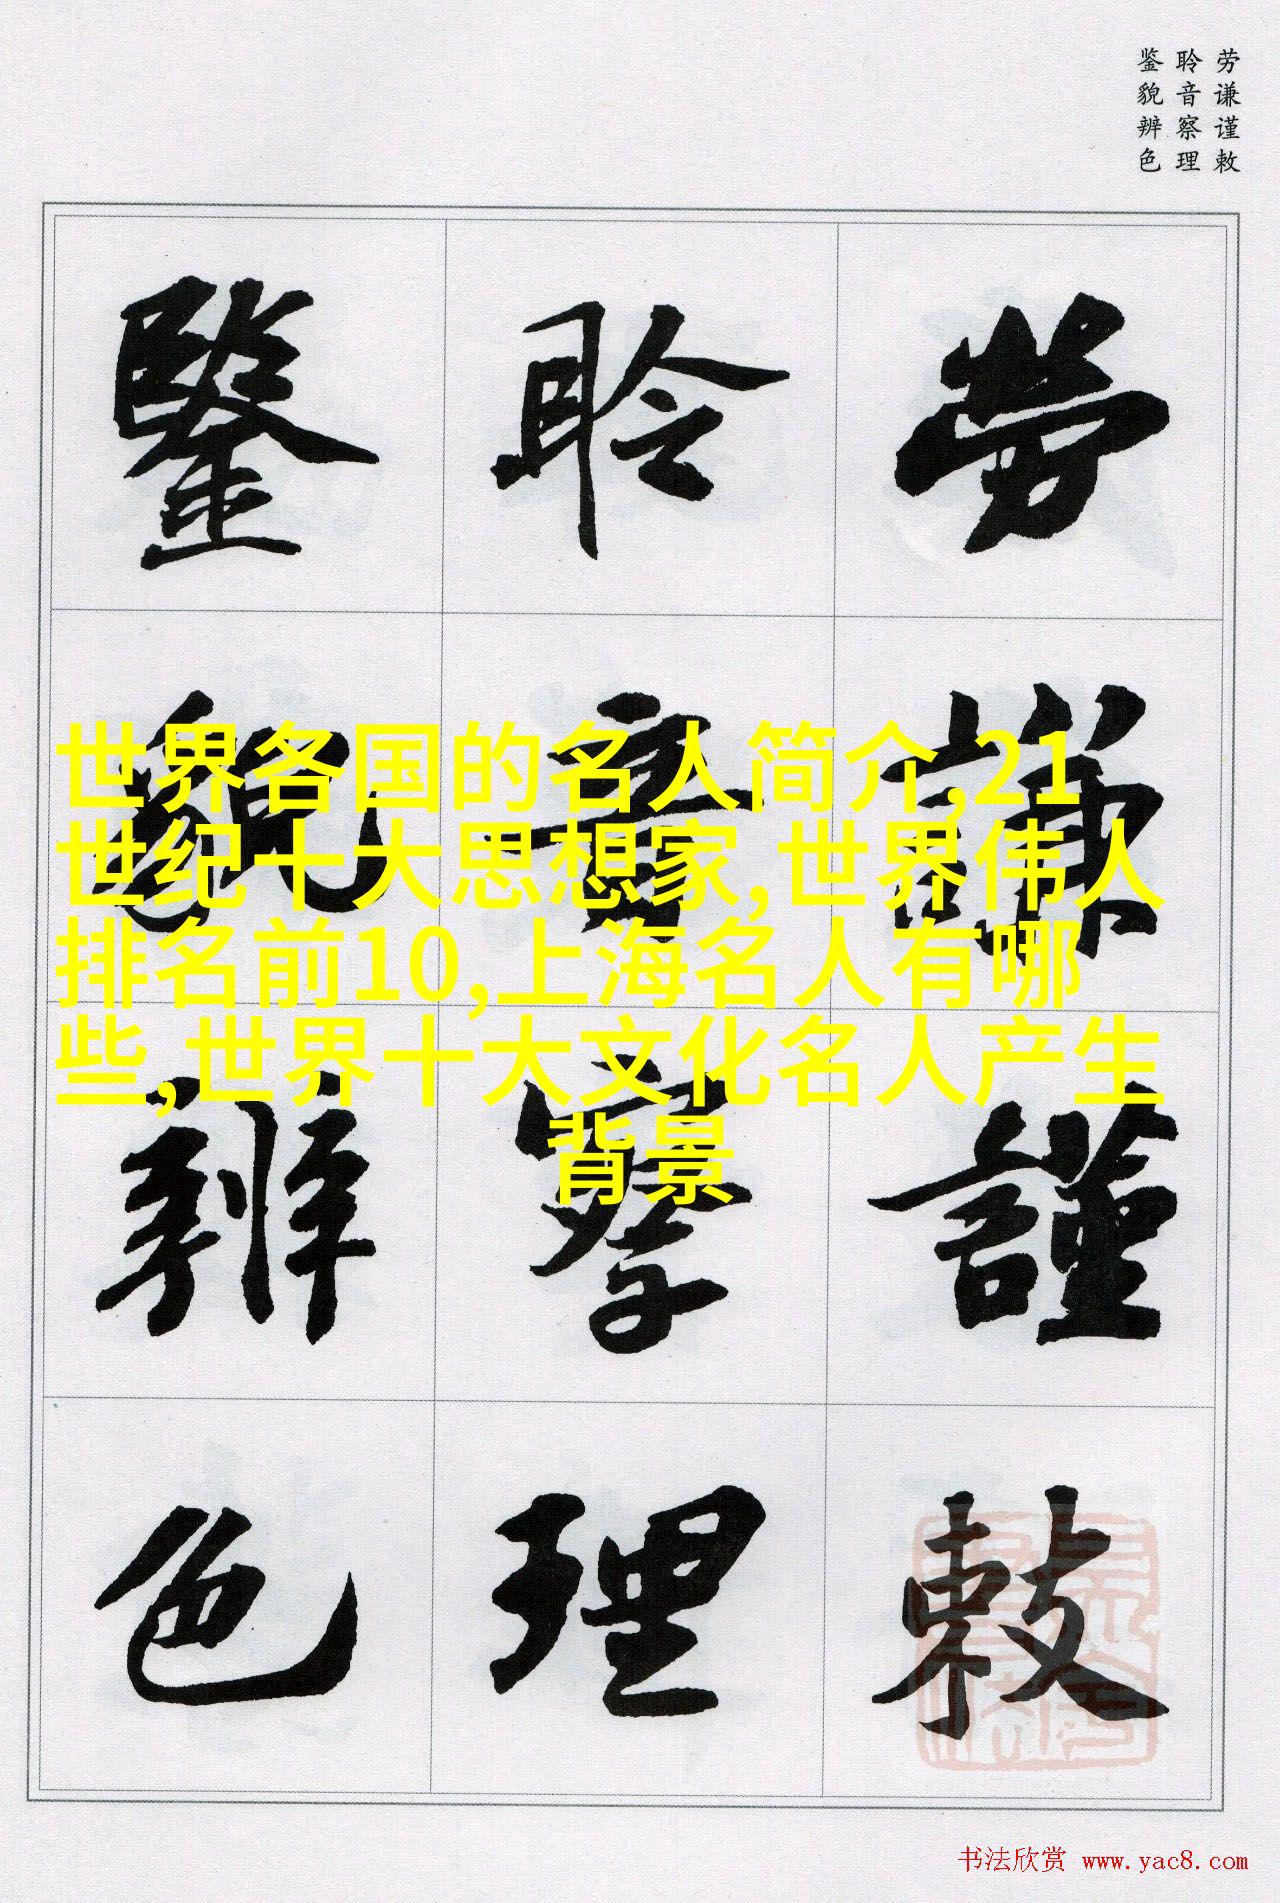 劳谦谨敕
聆音察理
鉴貌辨色
劳謙謹敕
聆音察理
鑒貌辨色
世界各国的名人简介,21
世纪十大思想家,世界伟人
排名前10,上海名人有哪
些,世界十大文化名人产生
背景
书法欣赏 www.yac8.com